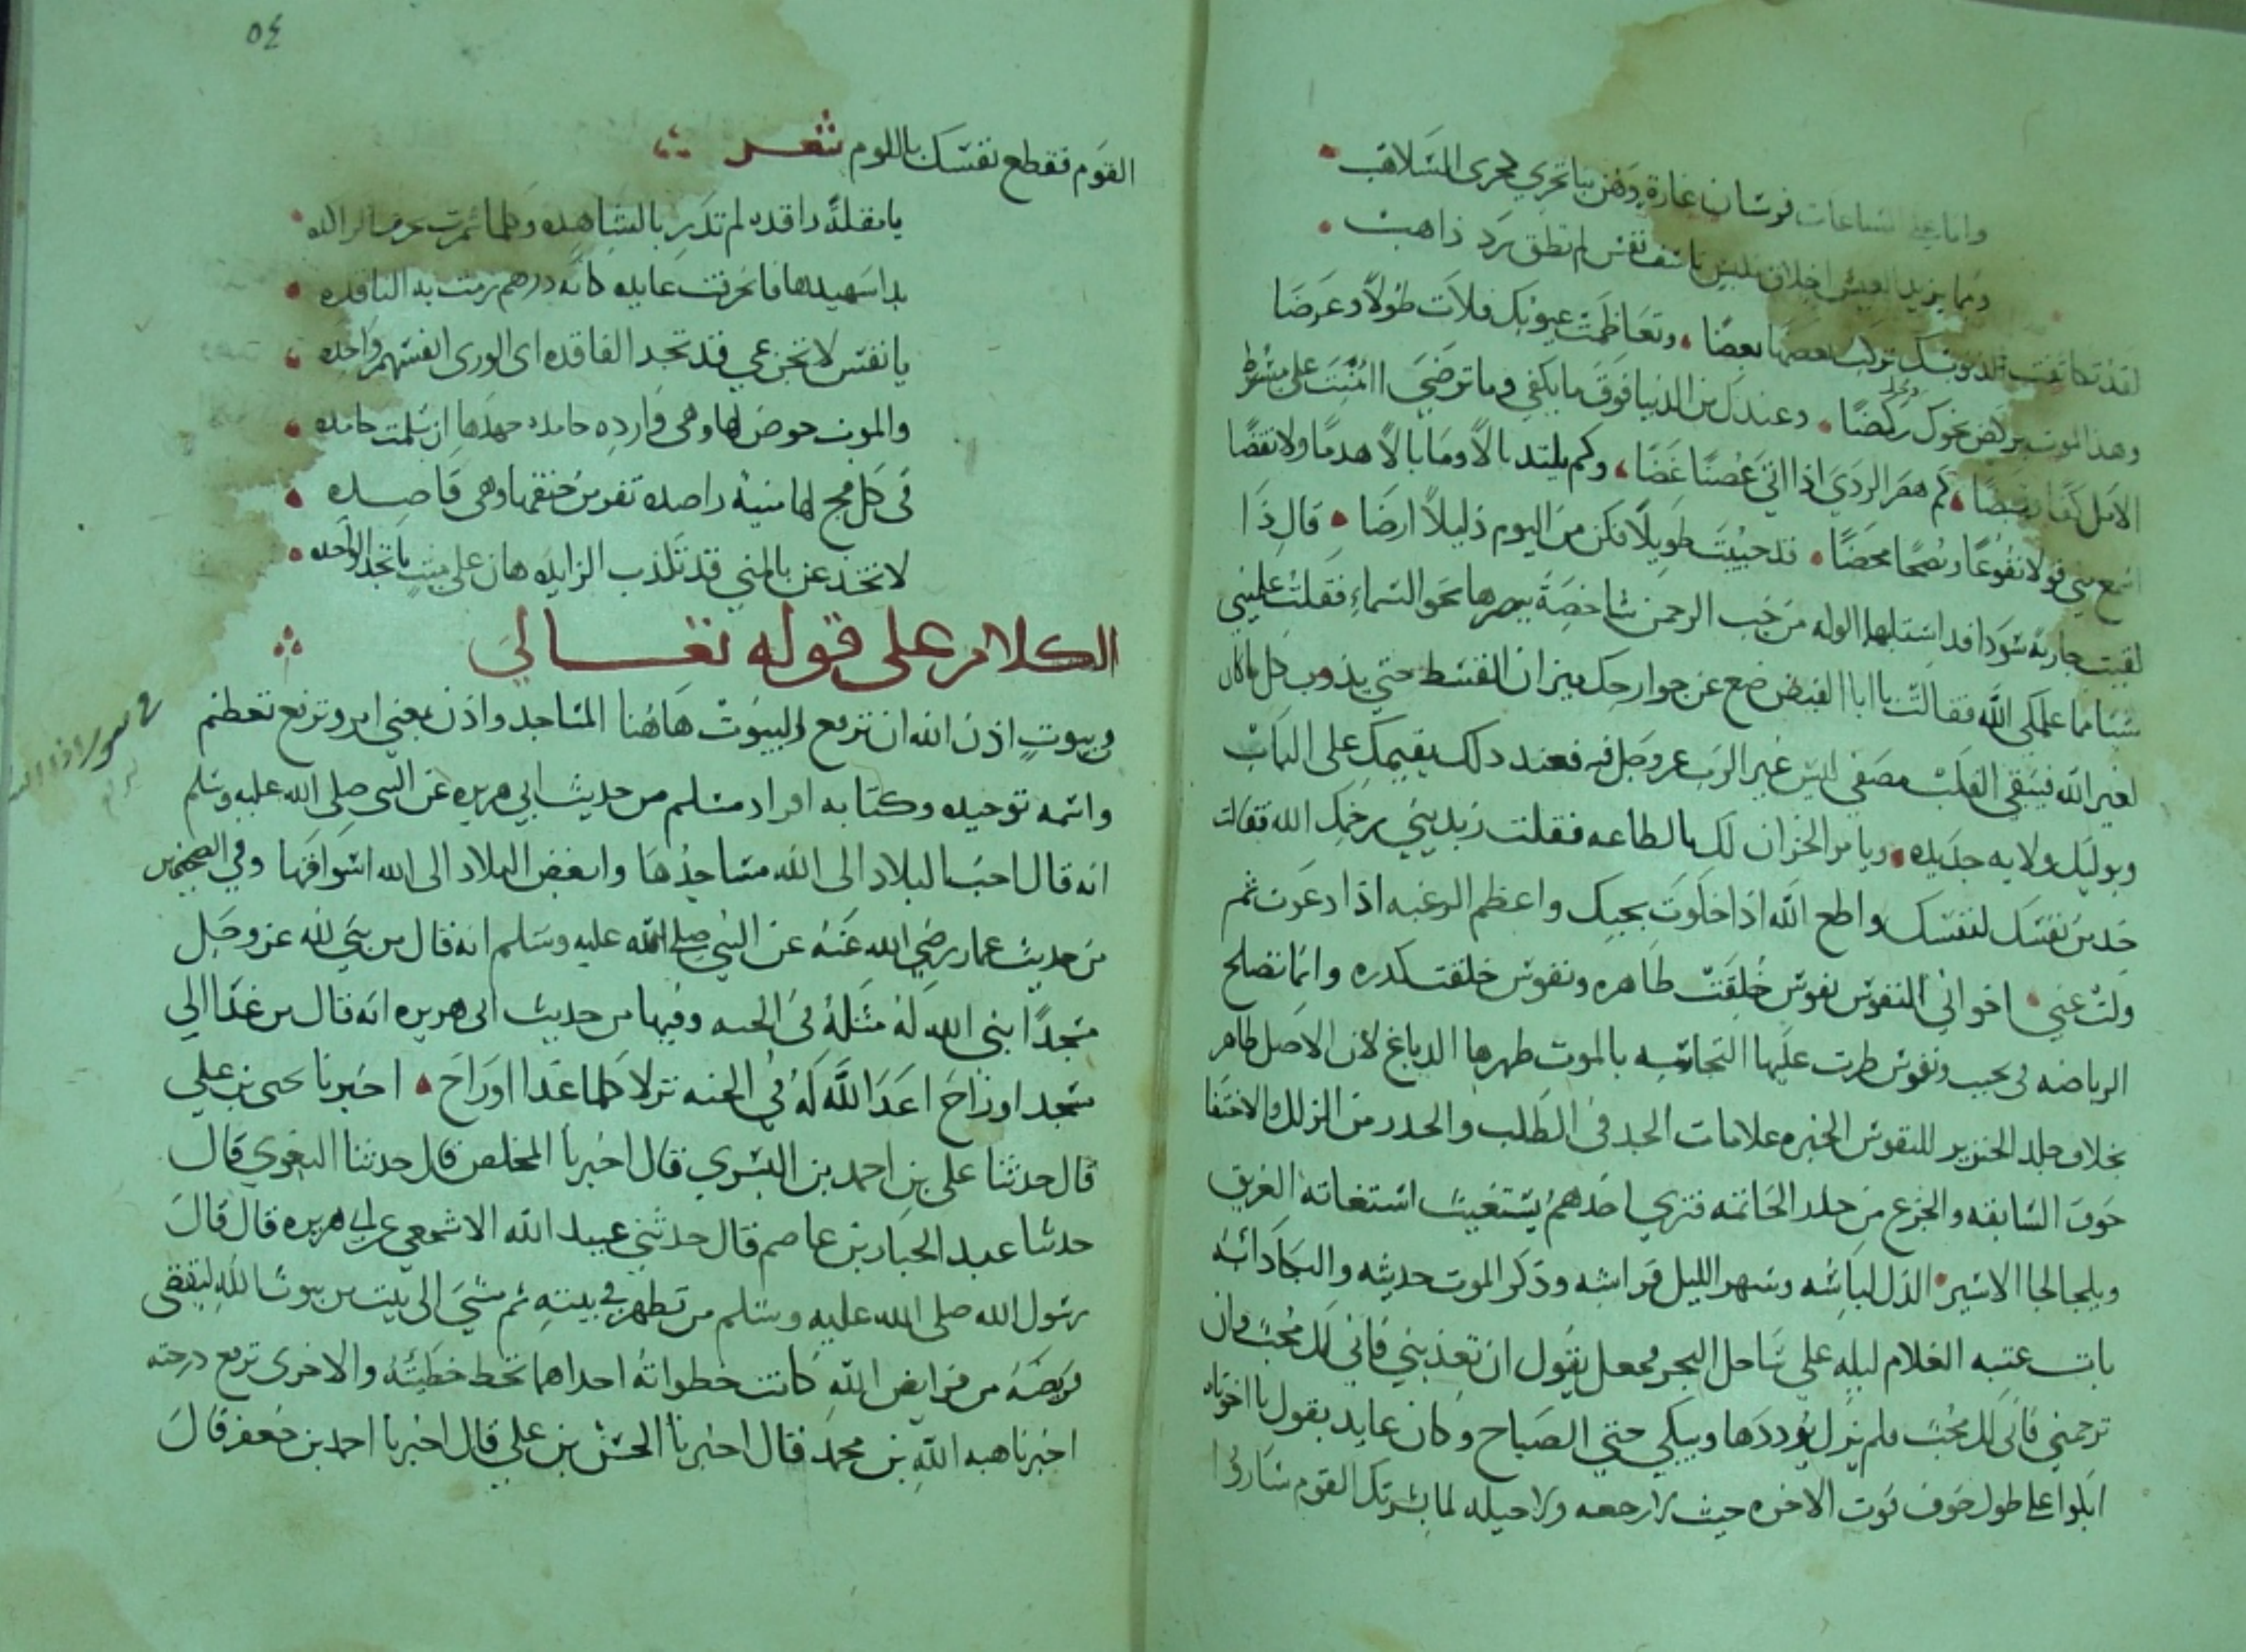 وانا على الساعات فرسان غارة وهن بنا تجري مجرى السلاهب
ومما يزيد العيش اخلاق ملبس تاسف نفس لم تطق رد ذاهب
لقد تكاثفت ذنوبك تركب بعضها بعضا وتعاظمت عيوبك فلات طولا وعرضا
وهذا الموت يركض نحوك ركضا وعندك من الدنيا فوق ما يكفي وما ترضي اامنت على مشط
الامل كفا وقبضا كم هصر الردي اذا اتي غصنا غضا وكم يلتد بالا وما بالا هدما ولا نقضا
اسمع مني قولا نفوعا ونصحا محضا قد حييت طويلا فكن من اليوم ذليلا ارضا قال ذا
لقيت جارية سودا قد استلبها الوله من حب الرحمن شاخصة ببصرها نحو السماء فقلت علميني
شيا مما علمك الله فقالت يا ابا الفيض ضع عن جوارحك ميزان القسط حتي يذوب كل ما كان
لغير الله فيبقى القلب مصفى ليس غير الرب عز وجل فيه فعند دلك يقيمك على الباب
ويوليك ولاية جديده ويامر الخزان لك بالطاعه فقلت زيديني يرحمك الله فقالت
خد من نفسك لنفسك واطع الله اذا خلوت يجبك واعظم الرغبه اذا دعوت ثم
ولت عني اخواني النفوس نفوس خلقت طاهره ونفوس خلقت كدره وانما تصلح
الرياضه في نجيب ونفوس طرت عليها النجاسه بالموت طهرها الدباغ لان الاصل طاهر
بخلاف جلد الخنزير للنفوس الخيره علامات الجد في الطلب والحدر من الزلل والاحتقا
خوف السابقه والجزع من حلد الخاتمه فتري احدهم يستغيث استغاثة الغريق
ويلجا لجا الاسير الذل لباسه وسهر الليل فراشه وذكر الموت حديثه والبكا دابه
بات عتبه الغلام ليله على ساحل البحر فجعل يقول ان تعذبني فاني لك محب وان
ترحمني فاني لك محب فلم يزل يرددها ويبكي حتي الصباح وكان عابد يقول يا اخوتاه
ابكوا على طول خوف فوت الاخره حيث لا رجعه ولا حيله لما بشرتك القوم ساروا
٥٤
القوم فقطع نفسك باللوم شعر
يا مقلة راقده لم تدر بالساهده وكلما
بدا سهيلها فانحرفت عايده كانه درهم رمت به الناقده
يا نفس لا تجزعي قد تجد الفاقده اي الورى انفسهم واحده
والموت حوض لها وهي وارده حامده جهدها ان سلمت حامده
في كل فج لها منية راصده تفر من حتفها وهي قاصده
لا تخدعن بالمني قد تكذب الزايده هان على ميت ما تجد الواحده
الكلام على قوله تعالى
في بيوت اذن الله ان ترفع والبيوت هاهنا المساجد واذن بمعني امر وترفع تعظم
واسمه توحيده وكتابه افراد مسلم من حديث ابي هريره عن النبي صلى الله عليه وسلم
انه قال احب البلاد الى الله مساجدها وابغض البلاد الى الله اسواقها وفي الصحيحين
من حديث عمار رضي الله عنه عن النبي صلى الله عليه وسلم انه قال من بني لله عز وجل
مسجدا بني الله له مثله في الجنه وفيها من حديث ابي هريره انه قال من غدا الي
مسجد او راح اعد الله له في الجنه نزلا كلما غدا او راح اخبرنا يحيى بن علي
قال حدثنا علي بن احمد بن البسري قال اخبرنا المخلص قال حدثنا البغوي قال
حدثنا عبد الجبار بن عاصم قال حدثني عبيد الله الاشجعي عن ابي هريره قال قال
رسول الله صلى الله عليه وسلم من تطهر في بيته ثم مشي الى بيت من بيوت الله ليقضي
فريضة من فرايض الله كانت خطواته احداهما تحط خطيئة والاخرى ترفع درجه
اخبرنا هبه الله بن محمد قال اخبرنا الحسن بن علي قال اخبرنا احمد بن جعفر قال